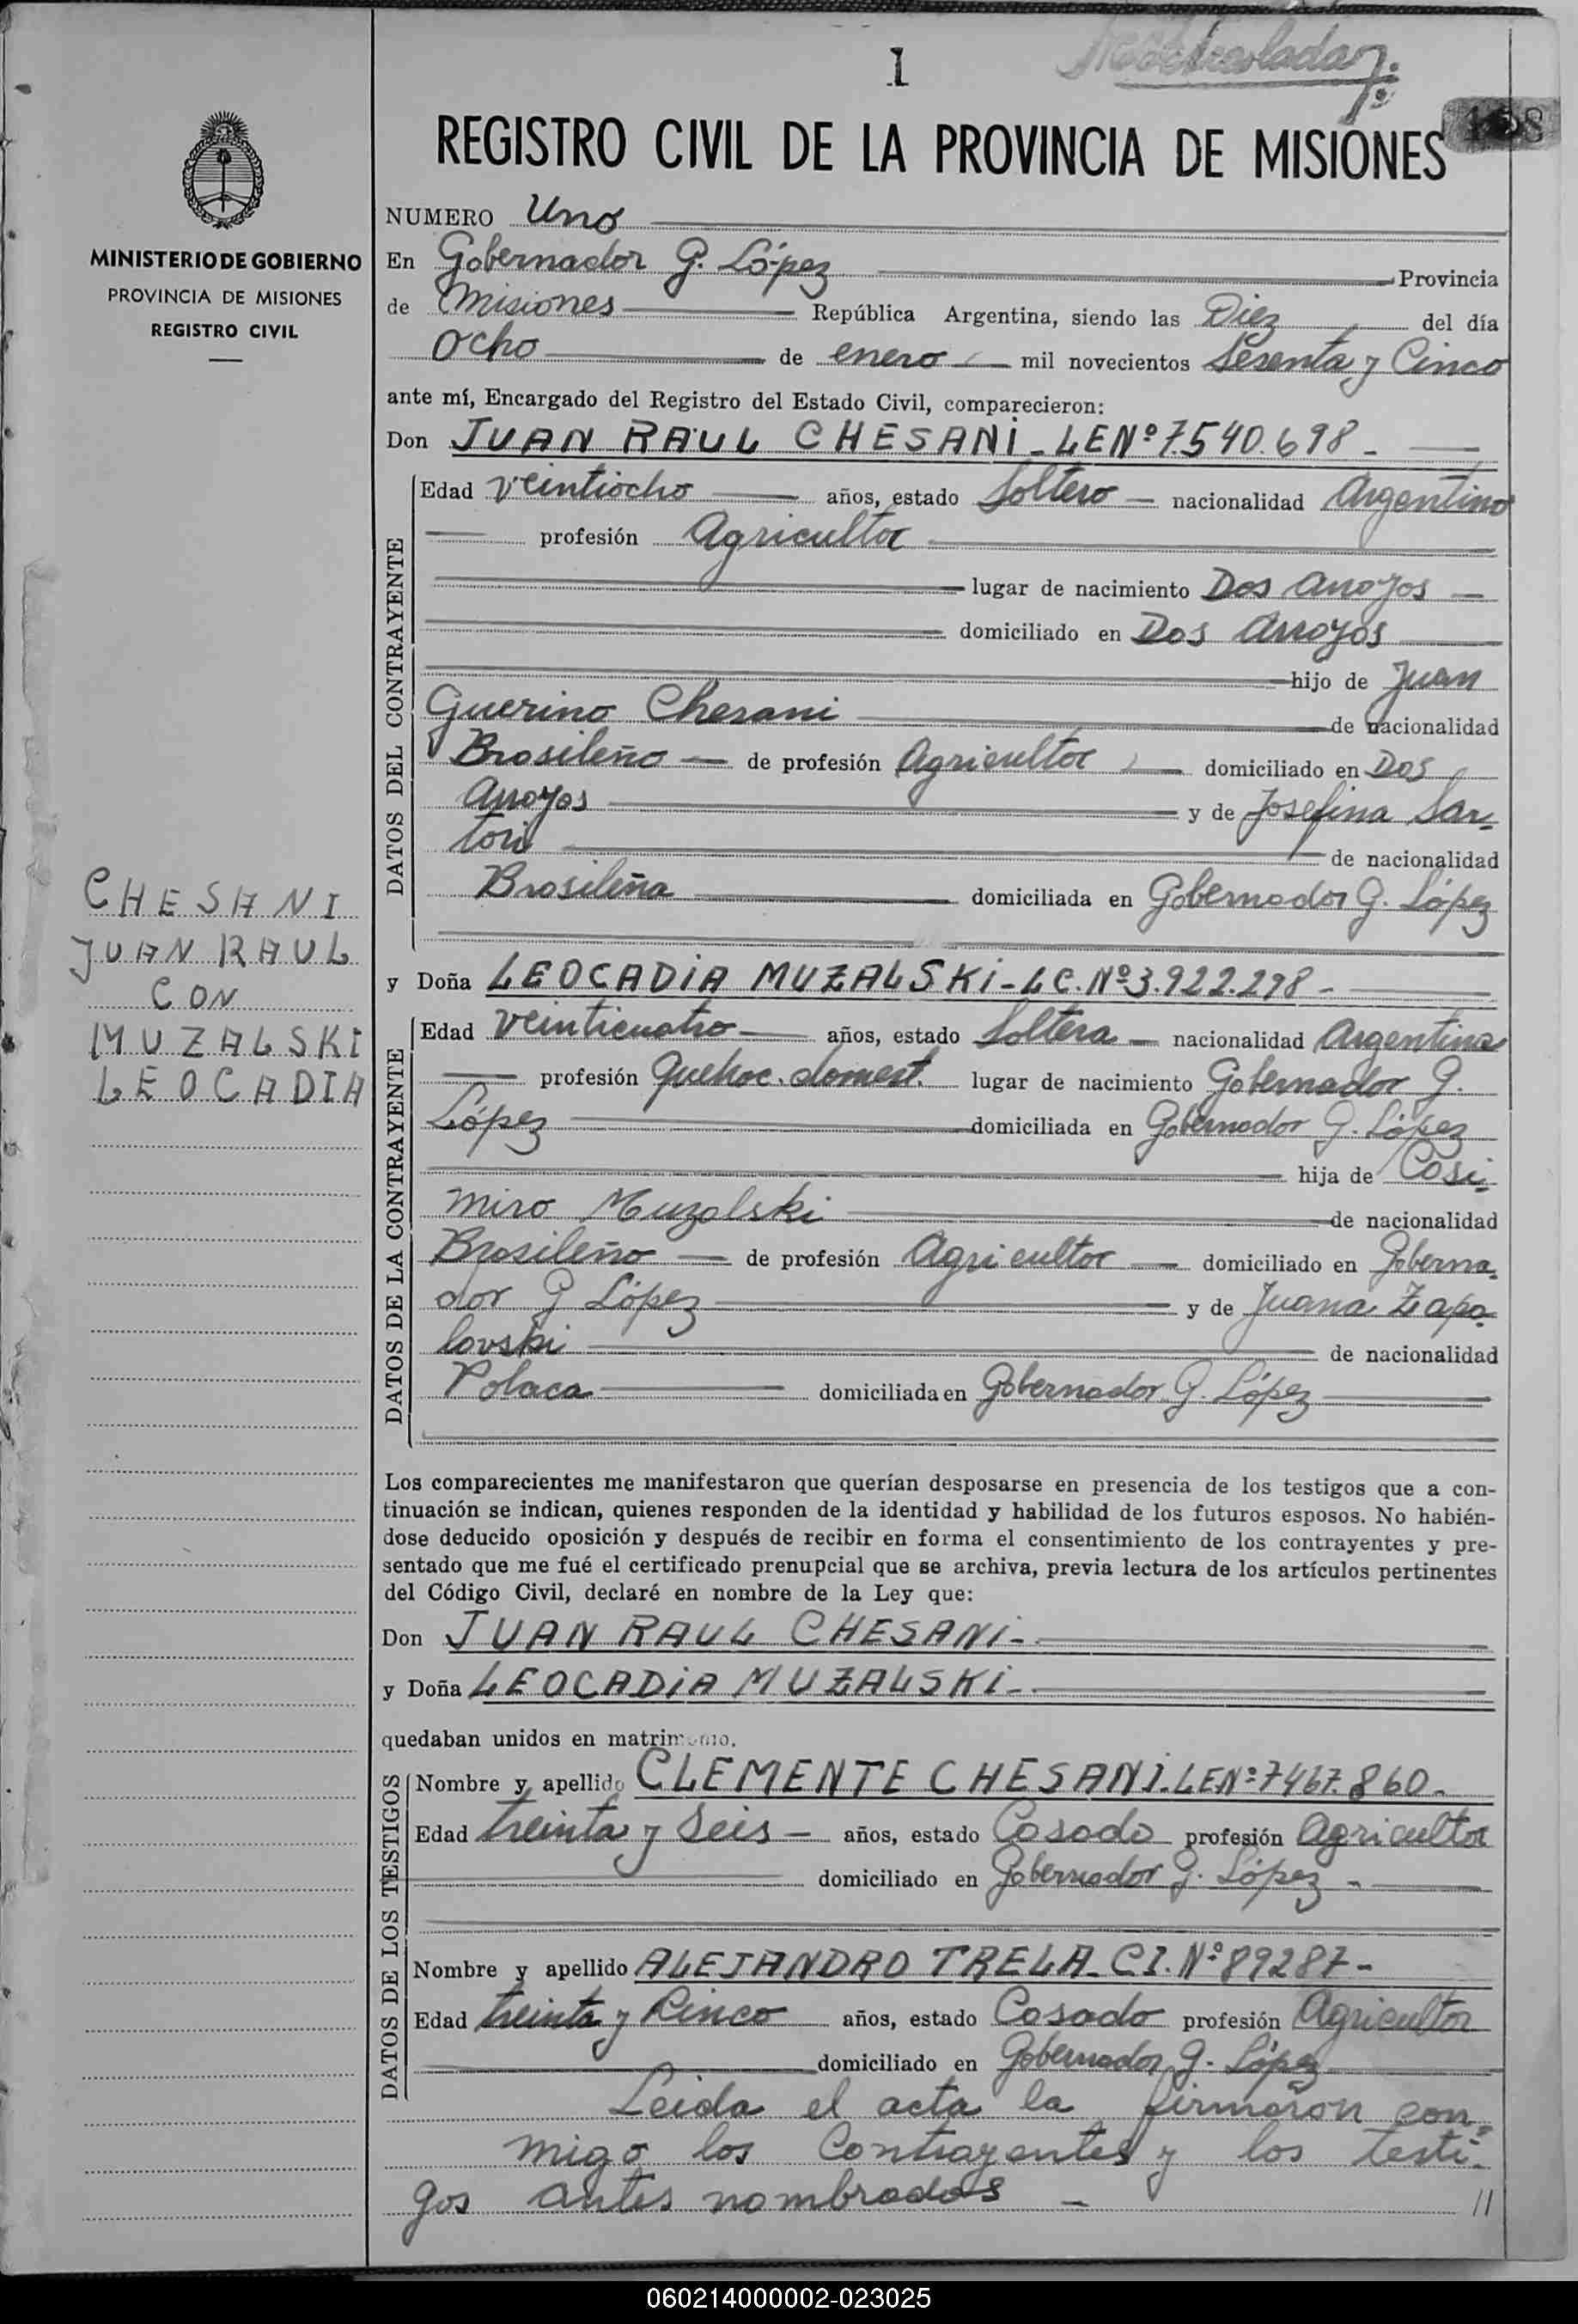 1
REGISTRO CIVIL DE LA PROVINCIA DE MISIONES
MINISTERIO DE GOBIERNO
PROVINCIA DE MISIONES
REGISTRO CIVIL
CHESANI
JUAN RAUL
CON
MUZALSKI
LEOCADIA
NUMERO Uno
En Gobernador G. López Provincia
de Misiones República Argentina, siendo las Diez del día
Ocho de enero mil novecientos Sesenta y Cinco
ante mí, Encargado del Registro del Estado Civil, comparecieron:
Don JUAN RAUL CHESANI - LE Nº 7.540.698 -
DATOS DEL CONTRAYENTE
Edad veintiocho años, estado Soltero nacionalidad Argentino
profesión Agricultor
lugar de nacimiento Dos Arroyos
domiciliado en Dos Arroyos
hijo de Juan
Guerino Chesani de nacionalidad
Brasileño de profesión Agricultor domiciliado en Dos
Arroyos y de Josefina Sar-
tori de nacionalidad
Brasileña domiciliada en Gobernador G. López
y Doña LEOCADIA MUZALSKI - LC. Nº 3.922.298 -
DATOS DE LA CONTRAYENTE
Edad veinticuatro años, estado Soltera nacionalidad Argentina
profesión Quehac. domest. lugar de nacimiento Gobernador G.
López domiciliada en Gobernador G. López
hija de Casi-
miro Muzalski de nacionalidad
Brasileño de profesión Agricultor domiciliado en Goberna-
dor G López y de Juana Zapa-
lovski de nacionalidad
Polaca domiciliada en Gobernador G. López
Los comparecientes me manifestaron que querían desposarse en presencia de los testigos que a con-
tinuación se indican, quienes responden de la identidad y habilidad de los futuros esposos. No habién-
dose deducido oposición y después de recibir en forma el consentimiento de los contrayentes y pre-
sentado que me fué el certificado prenupcial que se archiva, previa lectura de los artículos pertinentes
del Código Civil, declaré en nombre de la Ley que:
Don JUAN RAUL CHESANI -
y Doña LEOCADIA MUZALSKI -
quedaban unidos en matrimonio.
DATOS DE LOS TESTIGOS
Nombre y apellido CLEMENTE CHESANI. LE Nº 7467.860 -
Edad treinta y Seis - años, estado Casado profesión Agricultor
domiciliado en Gobernador G. López -
Nombre y apellido ALEJANDRO TRELA - CI. Nº 89287 -
Edad treinta y Cinco años, estado Casado profesión Agricultor
domiciliado en Gobernador G. López
Leida el acta la firmaron con-
migo los Contrayentes y los testi-
gos antes nombrados - //
060214000002-023025